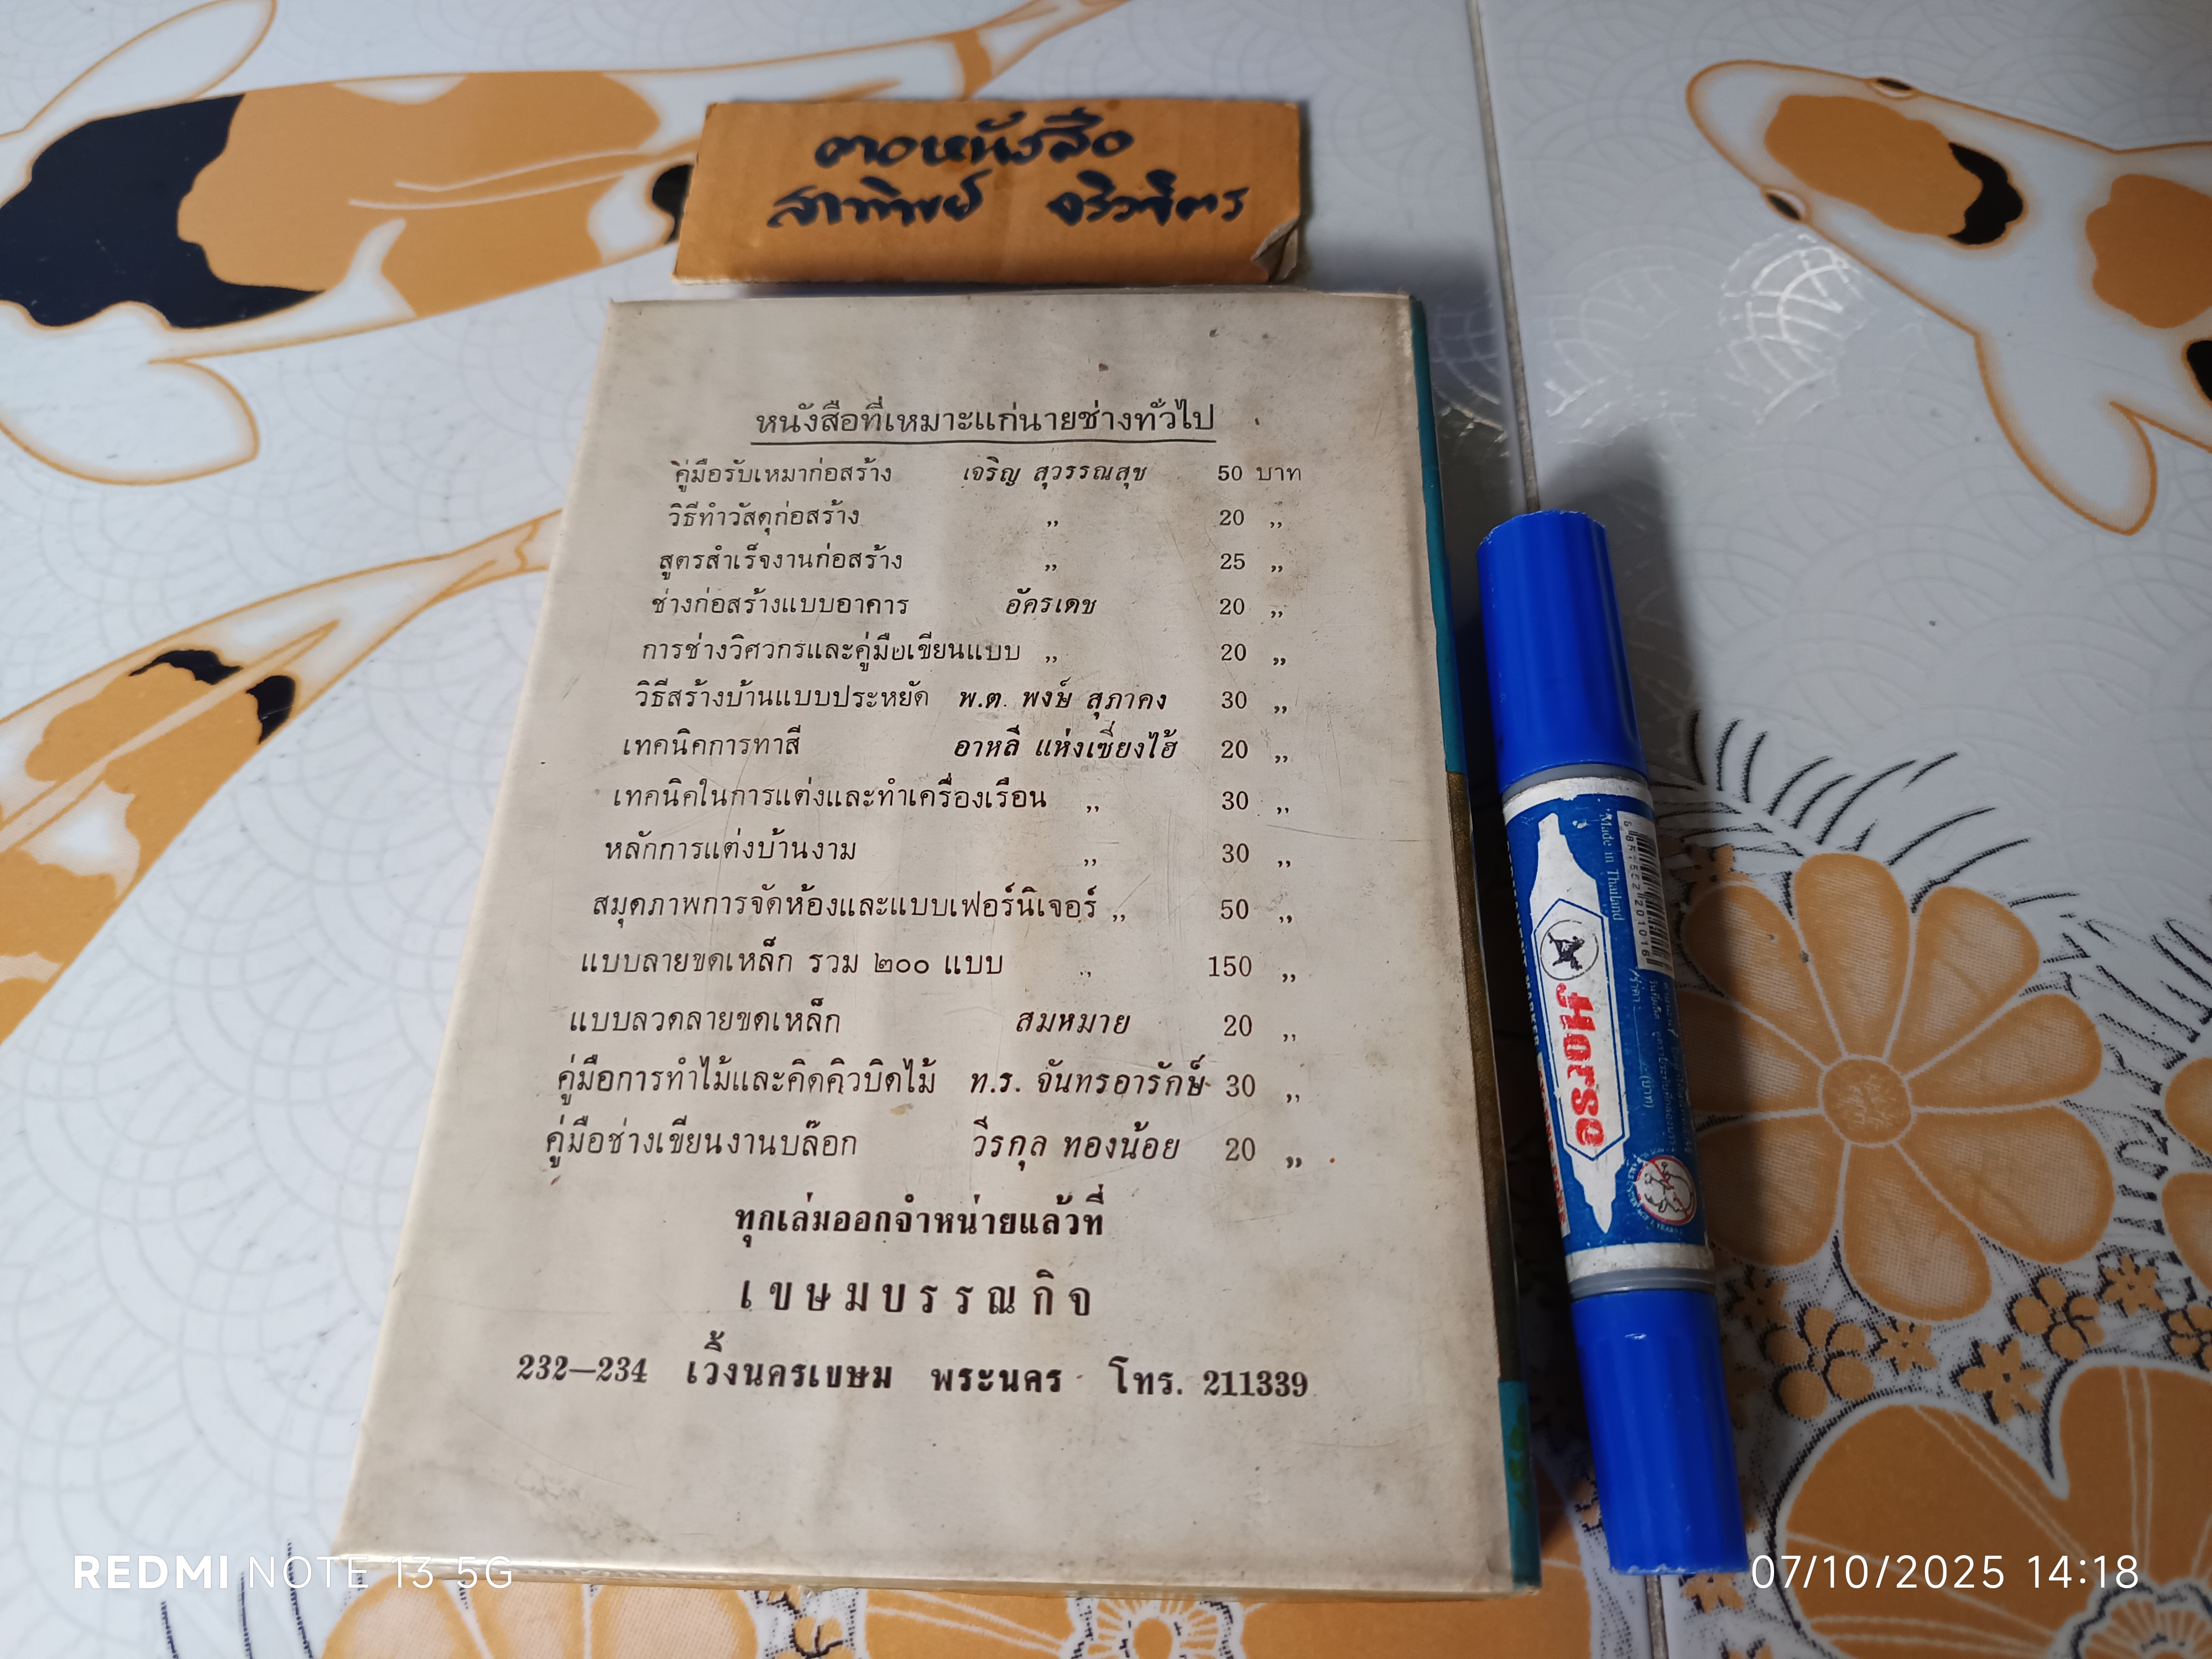 หนังสือที่เหมาะแก่นายช่างทั่วไป
คู่มือรับเหมาก่อสร้าง เจริญ สุวรรณสุข 50 บาท
วิธีทำวัสดุก่อสร้าง ,, 20 ,,
สูตรสำเร็จงานก่อสร้าง ,, 25 ,,
ช่างก่อสร้างแบบอาคาร อัครเดช 20 ,,
การช่างวิศวกรและคู่มือเขียนแบบ ,, 20 ,,
วิธีสร้างบ้านแบบประหยัด พ.ต. พงษ์ สุภาคง 30 ,,
เทคนิคการทาสี อาหลี แห่งเซี่ยงไฮ้ 20 ,,
เทคนิคในการแต่งและทำเครื่องเรือน ,, 30 ,,
หลักการแต่งบ้านงาม ,, 30 ,,
สมุดภาพการจัดห้องและแบบเฟอร์นิเจอร์ ,, 50 ,,
แบบลายขดเหล็ก รวม ๒๐๐ แบบ ,, 150 ,,
แบบลวดลายขดเหล็ก สมหมาย 20 ,,
คู่มือการทำไม้และคิดคิวบิดไม้ ท.ร. จันทรอารักษ์ 30 ,,
คู่มือช่างเขียนงานบล๊อก วีรกุล ทองน้อย 20 ,,
ทุกเล่มออกจำหน่ายแล้วที่
เขษมบรรณกิจ
232—234 เวิ้งนครเขษม พระนคร โทร. 211339
Made in Thailand
Horse
REDMI NOTE 13 5G
07/10/2025 14:18